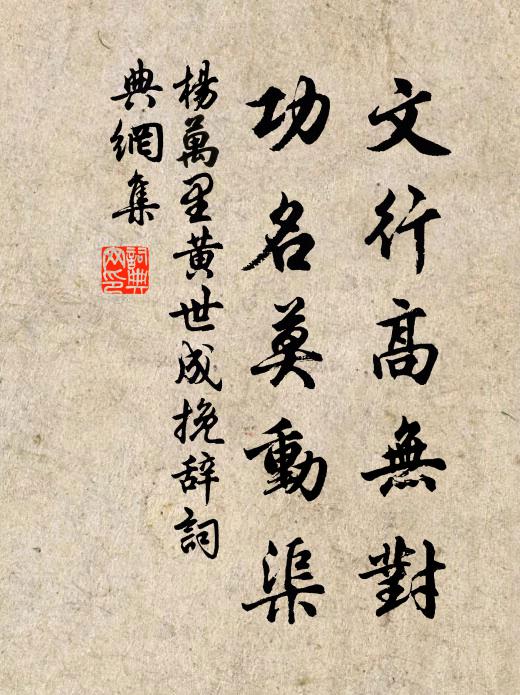 文行高無對
功名莫動渠
楊萬里黄世成挽辞詞
典網集
詞典